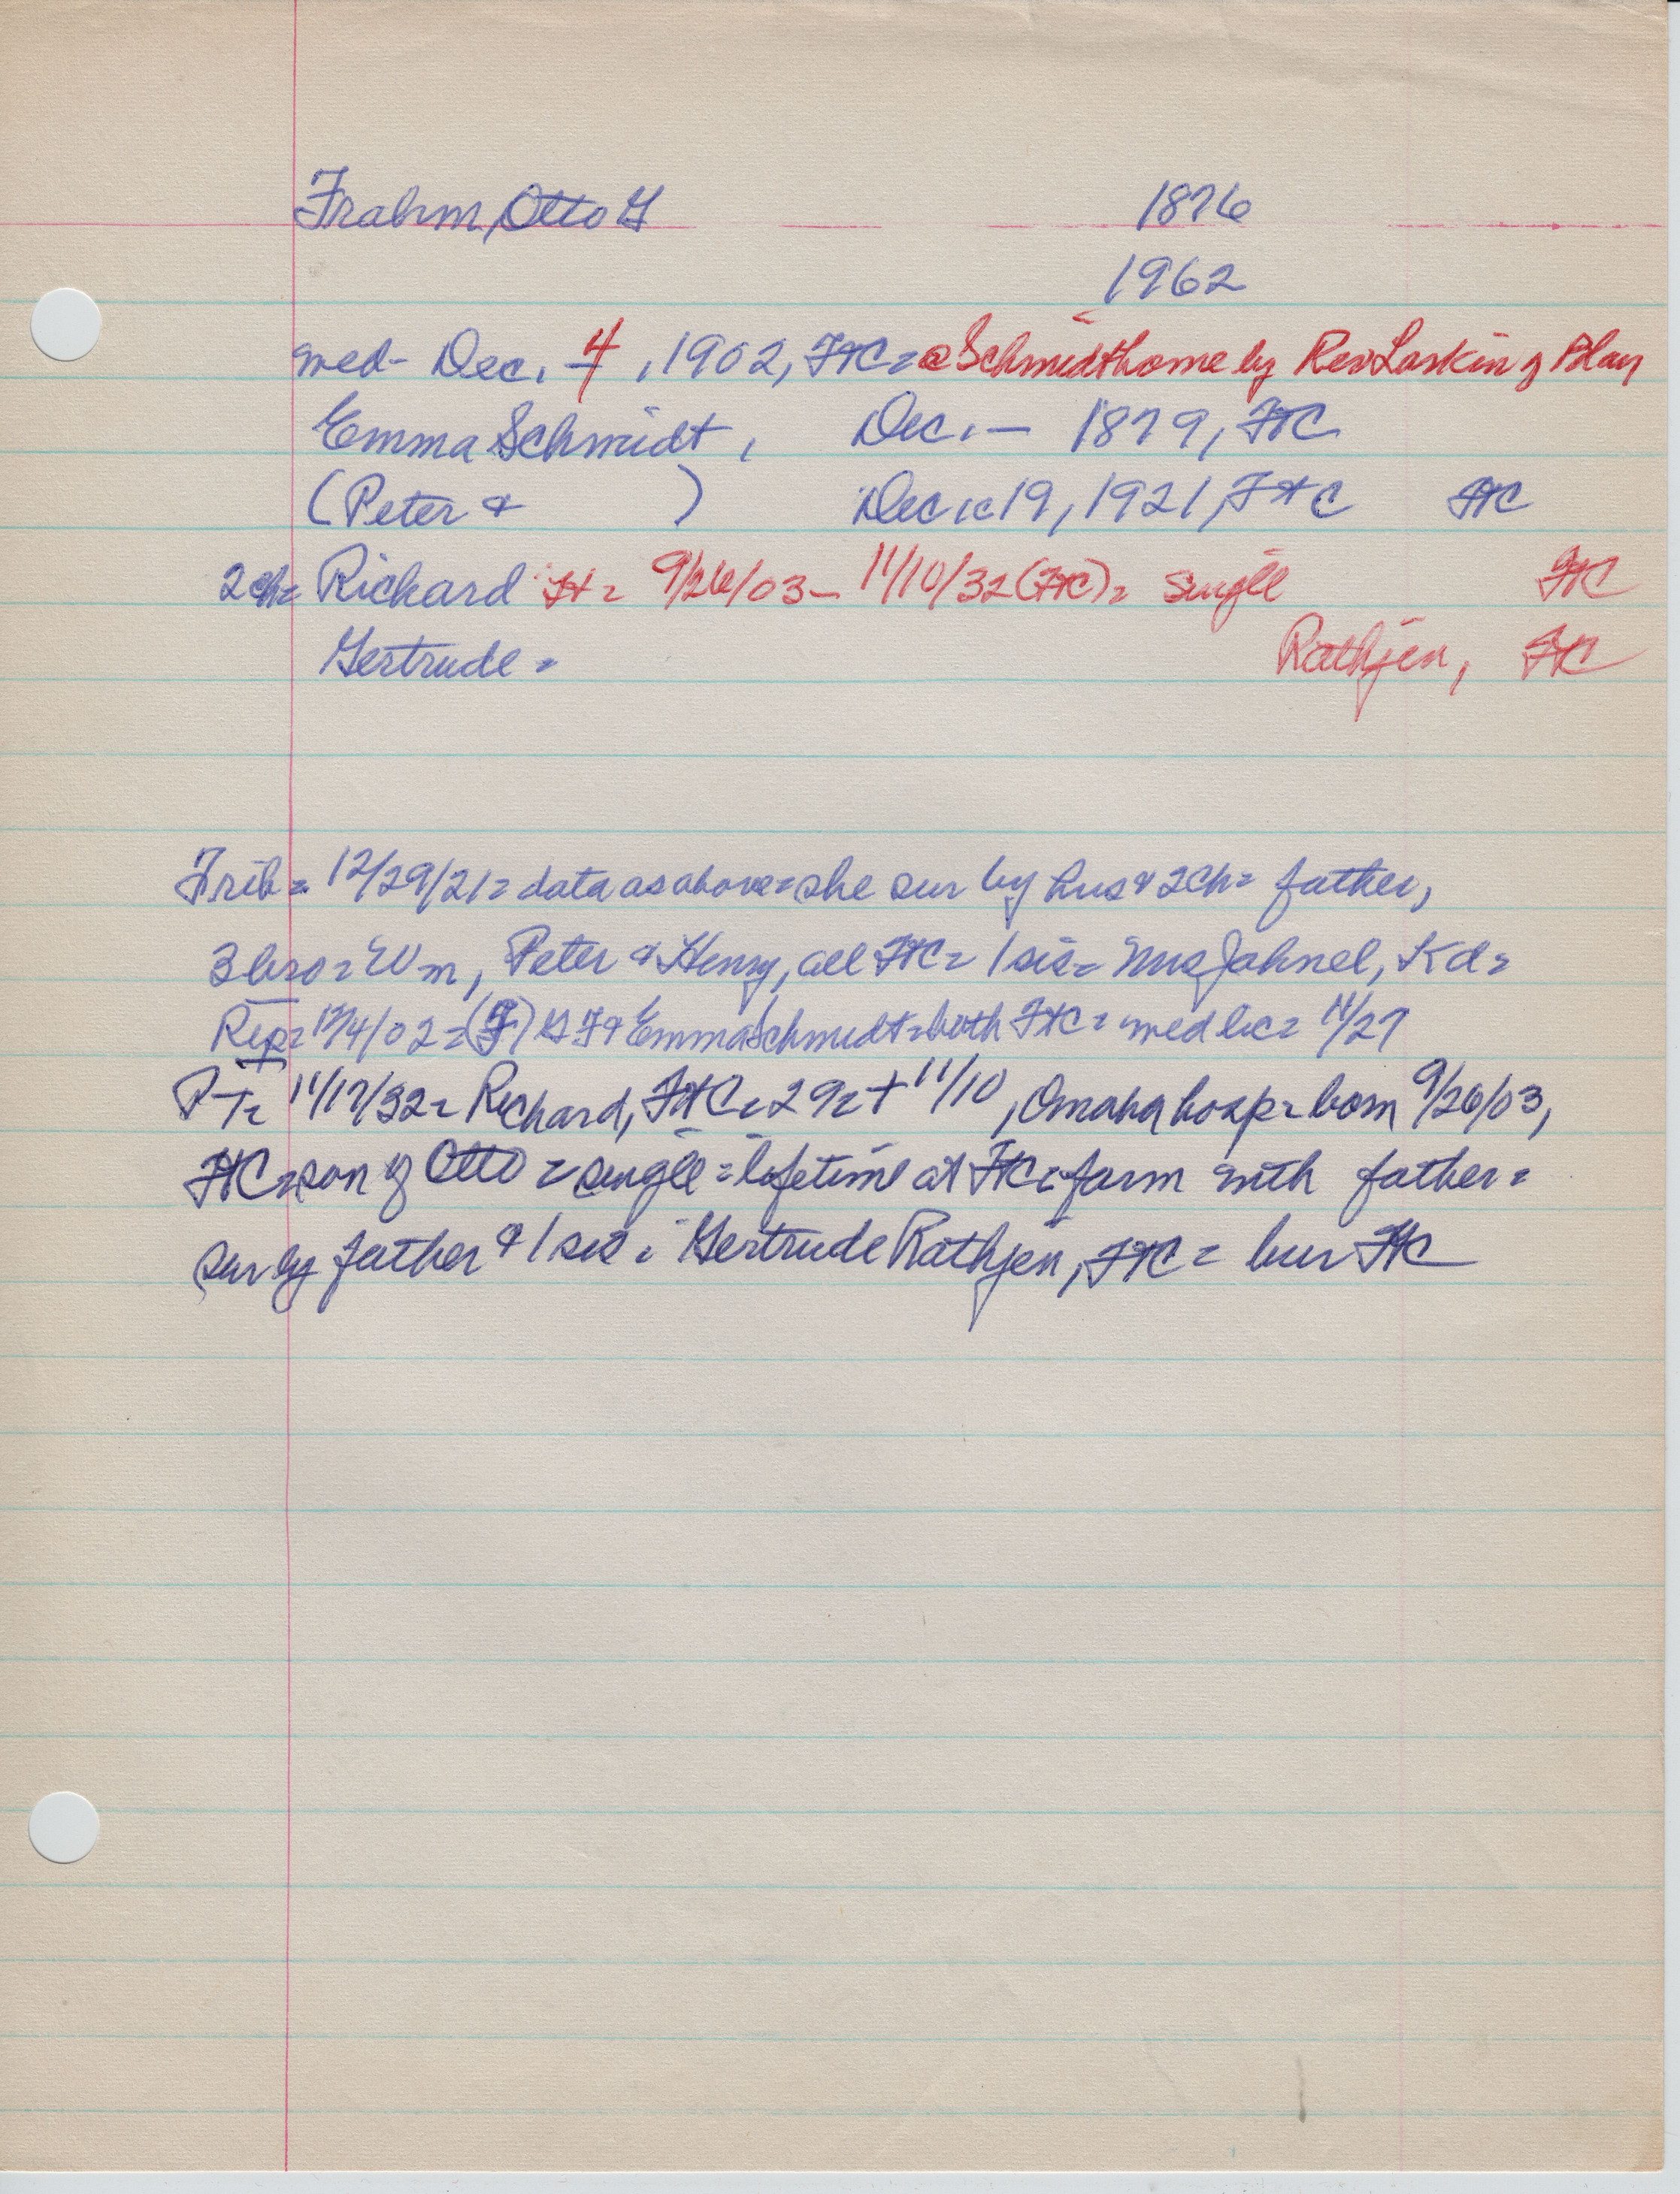 Frahm, Otto G 1876
1962
wed- Dec. 4, 1902, FtC = @ Schmidt home by Rev Laskin of Blair
Emma Schmidt, Dec. — 1879, FtC
(Peter & ) Dec 19, 1921, Ft C FtC
2 ch = Richard H = 9/26/03 - 11/10/32 (FtC) = single FtC
Gertrude = Rathjen, FtC
Trib = 12/29/21 = data as above = she sur by hus & 2 ch = father,
3 bro = Wm, Peter & Henry, all FtC = 1 sis = Mrs Jahnel, Kd =
Rep = 12/4/02 = (F) G F & Emma Schmidt = both FtC = wed lic = 11/27
PT = 11/17/32 = Richard, FtC = 29 = + 11/10, Omaha hosp = born 9/26/03,
FtC = son of Otto = single = lifetime at FtC = farm with father =
sur by father & 1 sis = Gertrude Rathjen, FtC = bur FtC